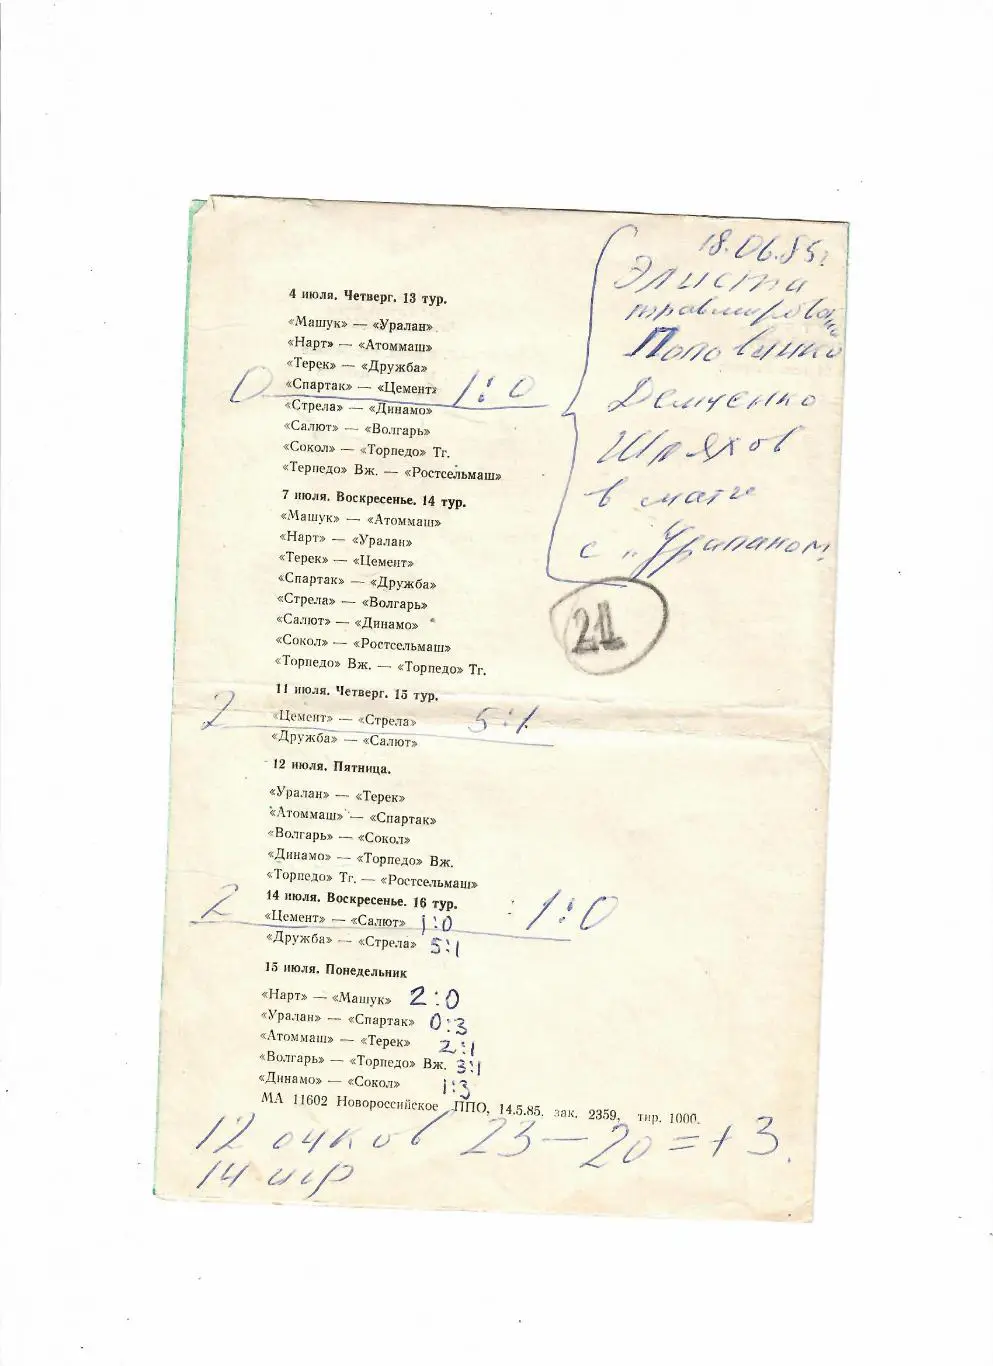 18.06.85г
Элиста
травмированы
Поповичко
Демченко
Шляхов
в матче
с "Ураланом"
21
4 июля. Четверг. 13 тур.
«Машук» — «Уралан».
«Нарт» — «Атоммаш»
«Терек» — «Дружба»
0 «Спартак» — «Цемент» 1:0
«Стрела» — «Динамо»
«Салют» — «Волгарь»
«Сокол» — «Торпедо» Тг.
«Терпедо» Вж. — «Ростсельмаш»
7 июля. Воскресенье. 14 тур.
«Машук» — «Атоммаш»
«Нарт» — «Уралан»
«Терек» — «Цемент»
«Спартак» — «Дружба»
«Стрела» — «Волгарь»
«Салют» — «Динамо»
«Сокол» — «Ростсельмаш»
«Торпедо» Вж. — «Торпедо» Тг.
11 июля. Четверг. 15 тур.
2 «Цемент» — «Стрела» 5:1
«Дружба» — «Салют»
12 июля. Пятница.
«Уралан» — «Терек»
«Атоммаш» — «Спартак»
«Волгарь» — «Сокол»
«Динамо» — «Торпедо» Вж.
«Торпедо» Тг. — «Ростсельмаш»
14 июля. Воскресенье. 16 тур.
2 «Цемент» — «Салют» 1:0 1:0
«Дружба» — «Стрела» 5:1
15 июля. Понедельник
«Нарт» — «Машук» 2:0
«Уралан» — «Спартак» 0:3
«Атоммаш» — «Терек» 2:1
«Волгарь» — «Торпедо» Вж. 3:1
«Динамо» — «Сокол» 1:3
МА 11602 Новороссийское ППО, 14.5.85. зак. 2359, тир. 1000.
12 очков 23 — 20 = +3.
14 игр